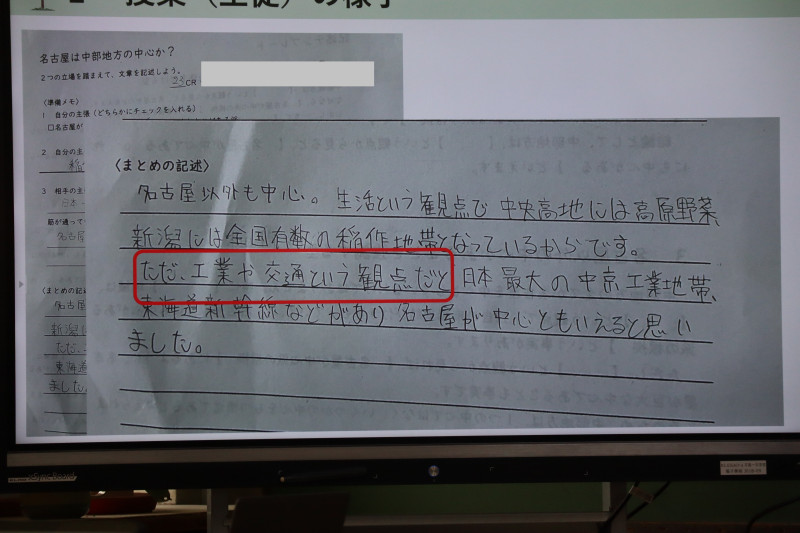 授業（生徒）の様子
名古屋は中部地方の中心か？
２つの立場を踏まえて、文章を記述しよう。
CR
〈準備メモ〉
1 自分の主張（どちらかにチェックを入れる）
□名古屋が
2 自分の主
3 相手の主
日本
筋が通って
名古屋
〈まとめの記
名古屋
新潟に
ただ、
東海道
ました。
〈まとめの記述〉
名古屋以外も中心。生活という観点で中央高地には高原野菜、
新潟には全国有数の稲作地帯となっているからです。
ただ、工業や交通という観点だと日本最大の中京工業地帯、
東海道新幹線などがあり名古屋が中心ともいえると思い
ました。